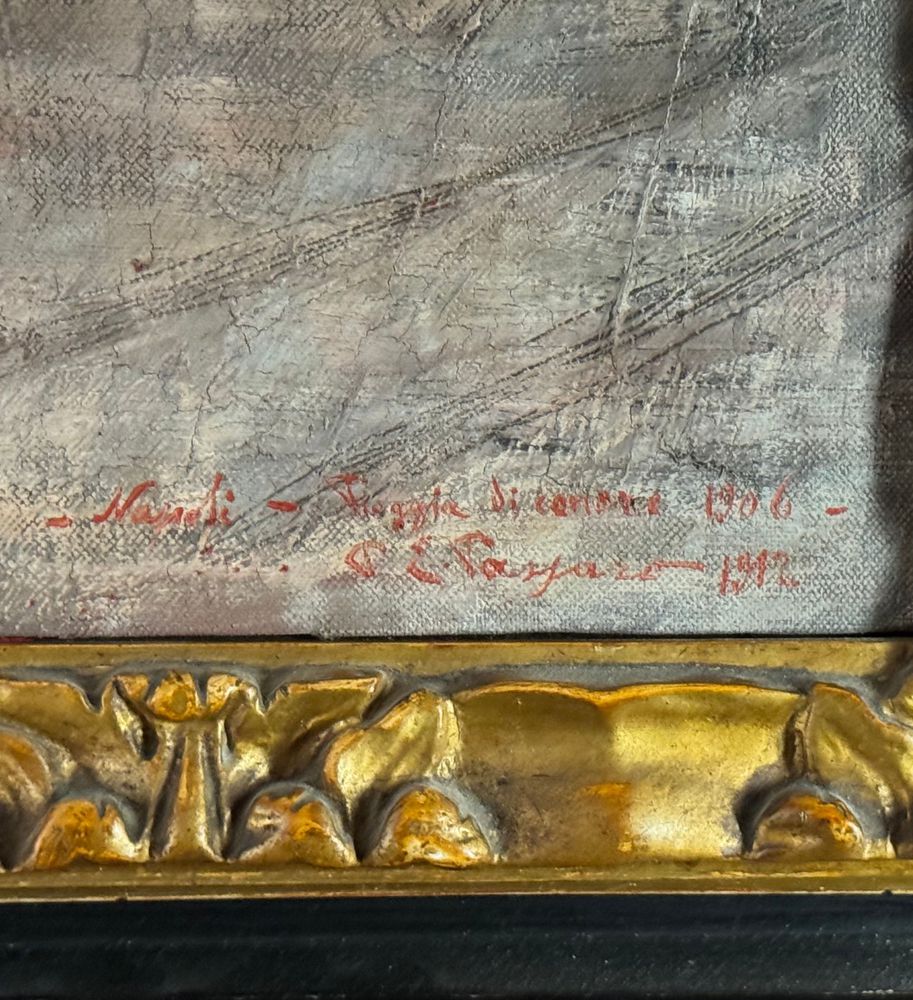 - Napoli - Pioggia di cenere 1906 -
P. E. Passaro 1912